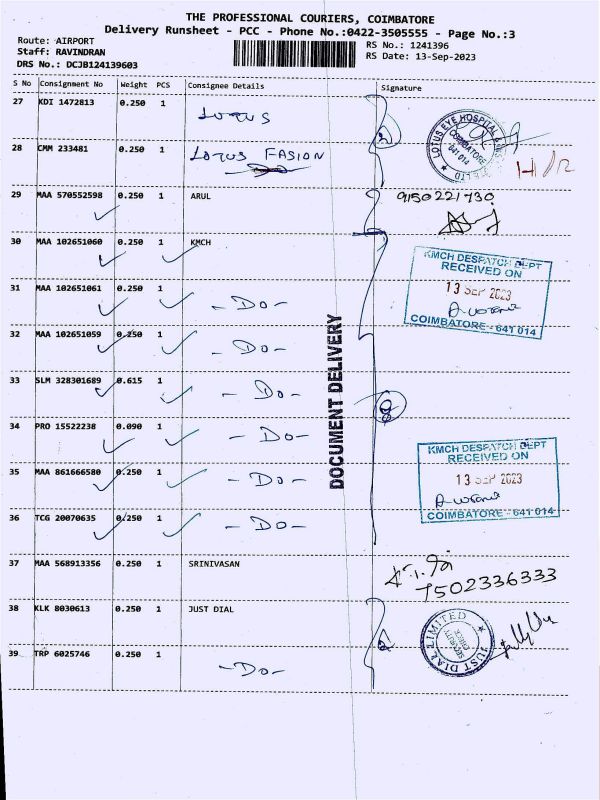 THE PROFESSIONAL COURIERS, COIMBATORE
Delivery Runsheet - PCC - Phone No.:0422-3505555 - Page No.:3
Route: AIRPORT
RS No.: 1241396
Staff: RAVINDRAN
RS Date: 13-Sep-2023
DRS No.: DCJB124139603
S No Consignment No Weight PCS Consignee Details Signature
27 KDI 1472813 0.250 1 LOTUS
28 CMM 233481 0.250 1 LOTUS FASION
LOTUS EYE HOSPITAL
COIMBATORE
641 014
LTD
29 MAA 570552598 0.250 1 ARUL 9150221730
30 MAA 102651060 0.250 1 KMCH
KMCH DESPATCH DEPT
RECEIVED ON
13 SEP 2023
COIMBATORE - 641 014
31 MAA 102651061 0.250 1 -Do-
32 MAA 102651059 0.250 1 -Do-
33 SLM 328301689 0.615 1 -Do-
34 PRO 15522238 0.090 1 -Do-
35 MAA 861666580 0.250 1 -Do-
36 TCG 20070635 0.250 1 -Do-
KMCH DESPATCH DEPT
RECEIVED ON
13 SEP 2023
COIMBATORE - 641 014
DOCUMENT DELIVERY
37 MAA 568913356 0.250 1 SRINIVASAN 7502336333
38 KLK 8030613 0.250 1 JUST DIAL
JUST DIAL LIMITED
SECURITY
CHECK
39 TRP 6025746 0.250 1 -Do-